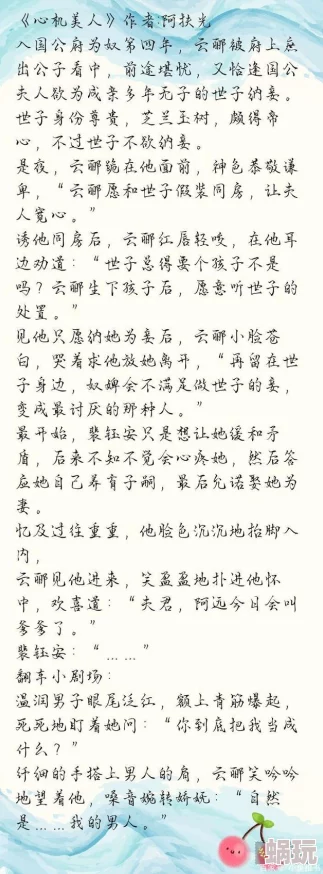 《心机美人》作者:阿扶光
入国公府为奴第四年，云郦被府上庶
出公子看中，前途堪忧，又恰逢国公
夫人欲为成亲多年无子的世子纳妾。
世子身份尊贵，芝兰玉树，颇得帝
心，不过世子不欲纳妾。
是夜，云郦跪在他面前，神色恭敬谦
卑，“云郦愿和世子假装同房，让夫
人宽心。”
诱他同房后，云郦红唇轻咬，在他耳
边劝道：“世子总得要个孩子不是
吗？云郦生下孩子后，愿意听世子的
处置。”
见他只愿纳她为妾后，云郦小脸苍
白，哭着求他放她离开，“再留在世
子身边，奴婢会不满足做世子的妾，
变成最讨厌的那种人。”
最开始，裴钰安只是想让她缓和矛
盾，后来不知不觉会心疼她，然后答
应她自己养育子嗣，最后允诺娶她为
妻。
忆及过往重重，他脸色沉沉地抬脚入
内，
云郦见他进来，笑盈盈地扑进他怀
中，欢喜道：“夫君，阿远今日会叫
爹爹了。”
裴钰安：“……”
翻车小剧场：
温润男子眼尾泛红，额上青筋爆起，
死死地盯着她问：“你到底把我当成
什么？”
纤细的手搭上男人的肩，云郦笑吟吟
地望着他，嗓音婉转娇妩：“自然
是……我的男人。”
蜗玩